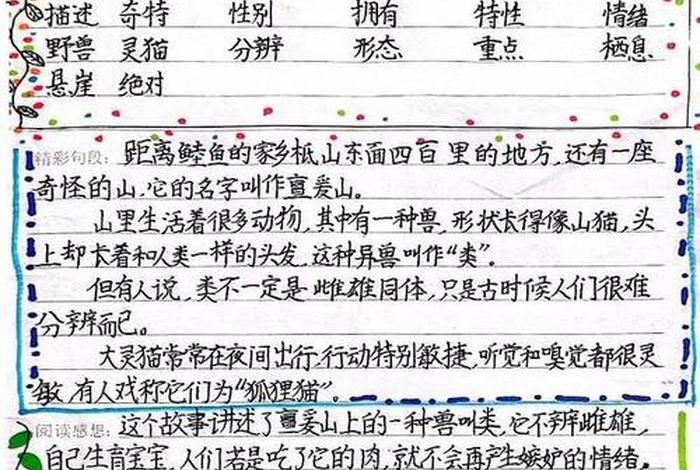 描述 奇特 性别 拥有 特性 情绪
野兽 灵猫 分辨 形态 重点 栖息
悬崖 绝对
精彩句段: 距离鯥鱼的家乡柢山东面四百里的地方,还有一座
奇怪的山,它的名字叫作亶爰山。
山里生活着很多动物,其中有一种兽,形状长得像山猫,头
上却长着和人类一样的头发,这种异兽叫作“类”。
但有人说,类不一定是雌雄同体,只是古时候人们很难
分辨而已。
大灵猫常常在夜间出行,行动特别敏捷,听觉和嗅觉都很灵
敏,有人戏称它们为“狐狸猫”。
阅读感想: 这个故事讲述了亶爰山上的一种兽叫类,它不辨雌雄,
自己生育宝宝,人们若是吃了它的肉,就不会再产生嫉妒的情绪。